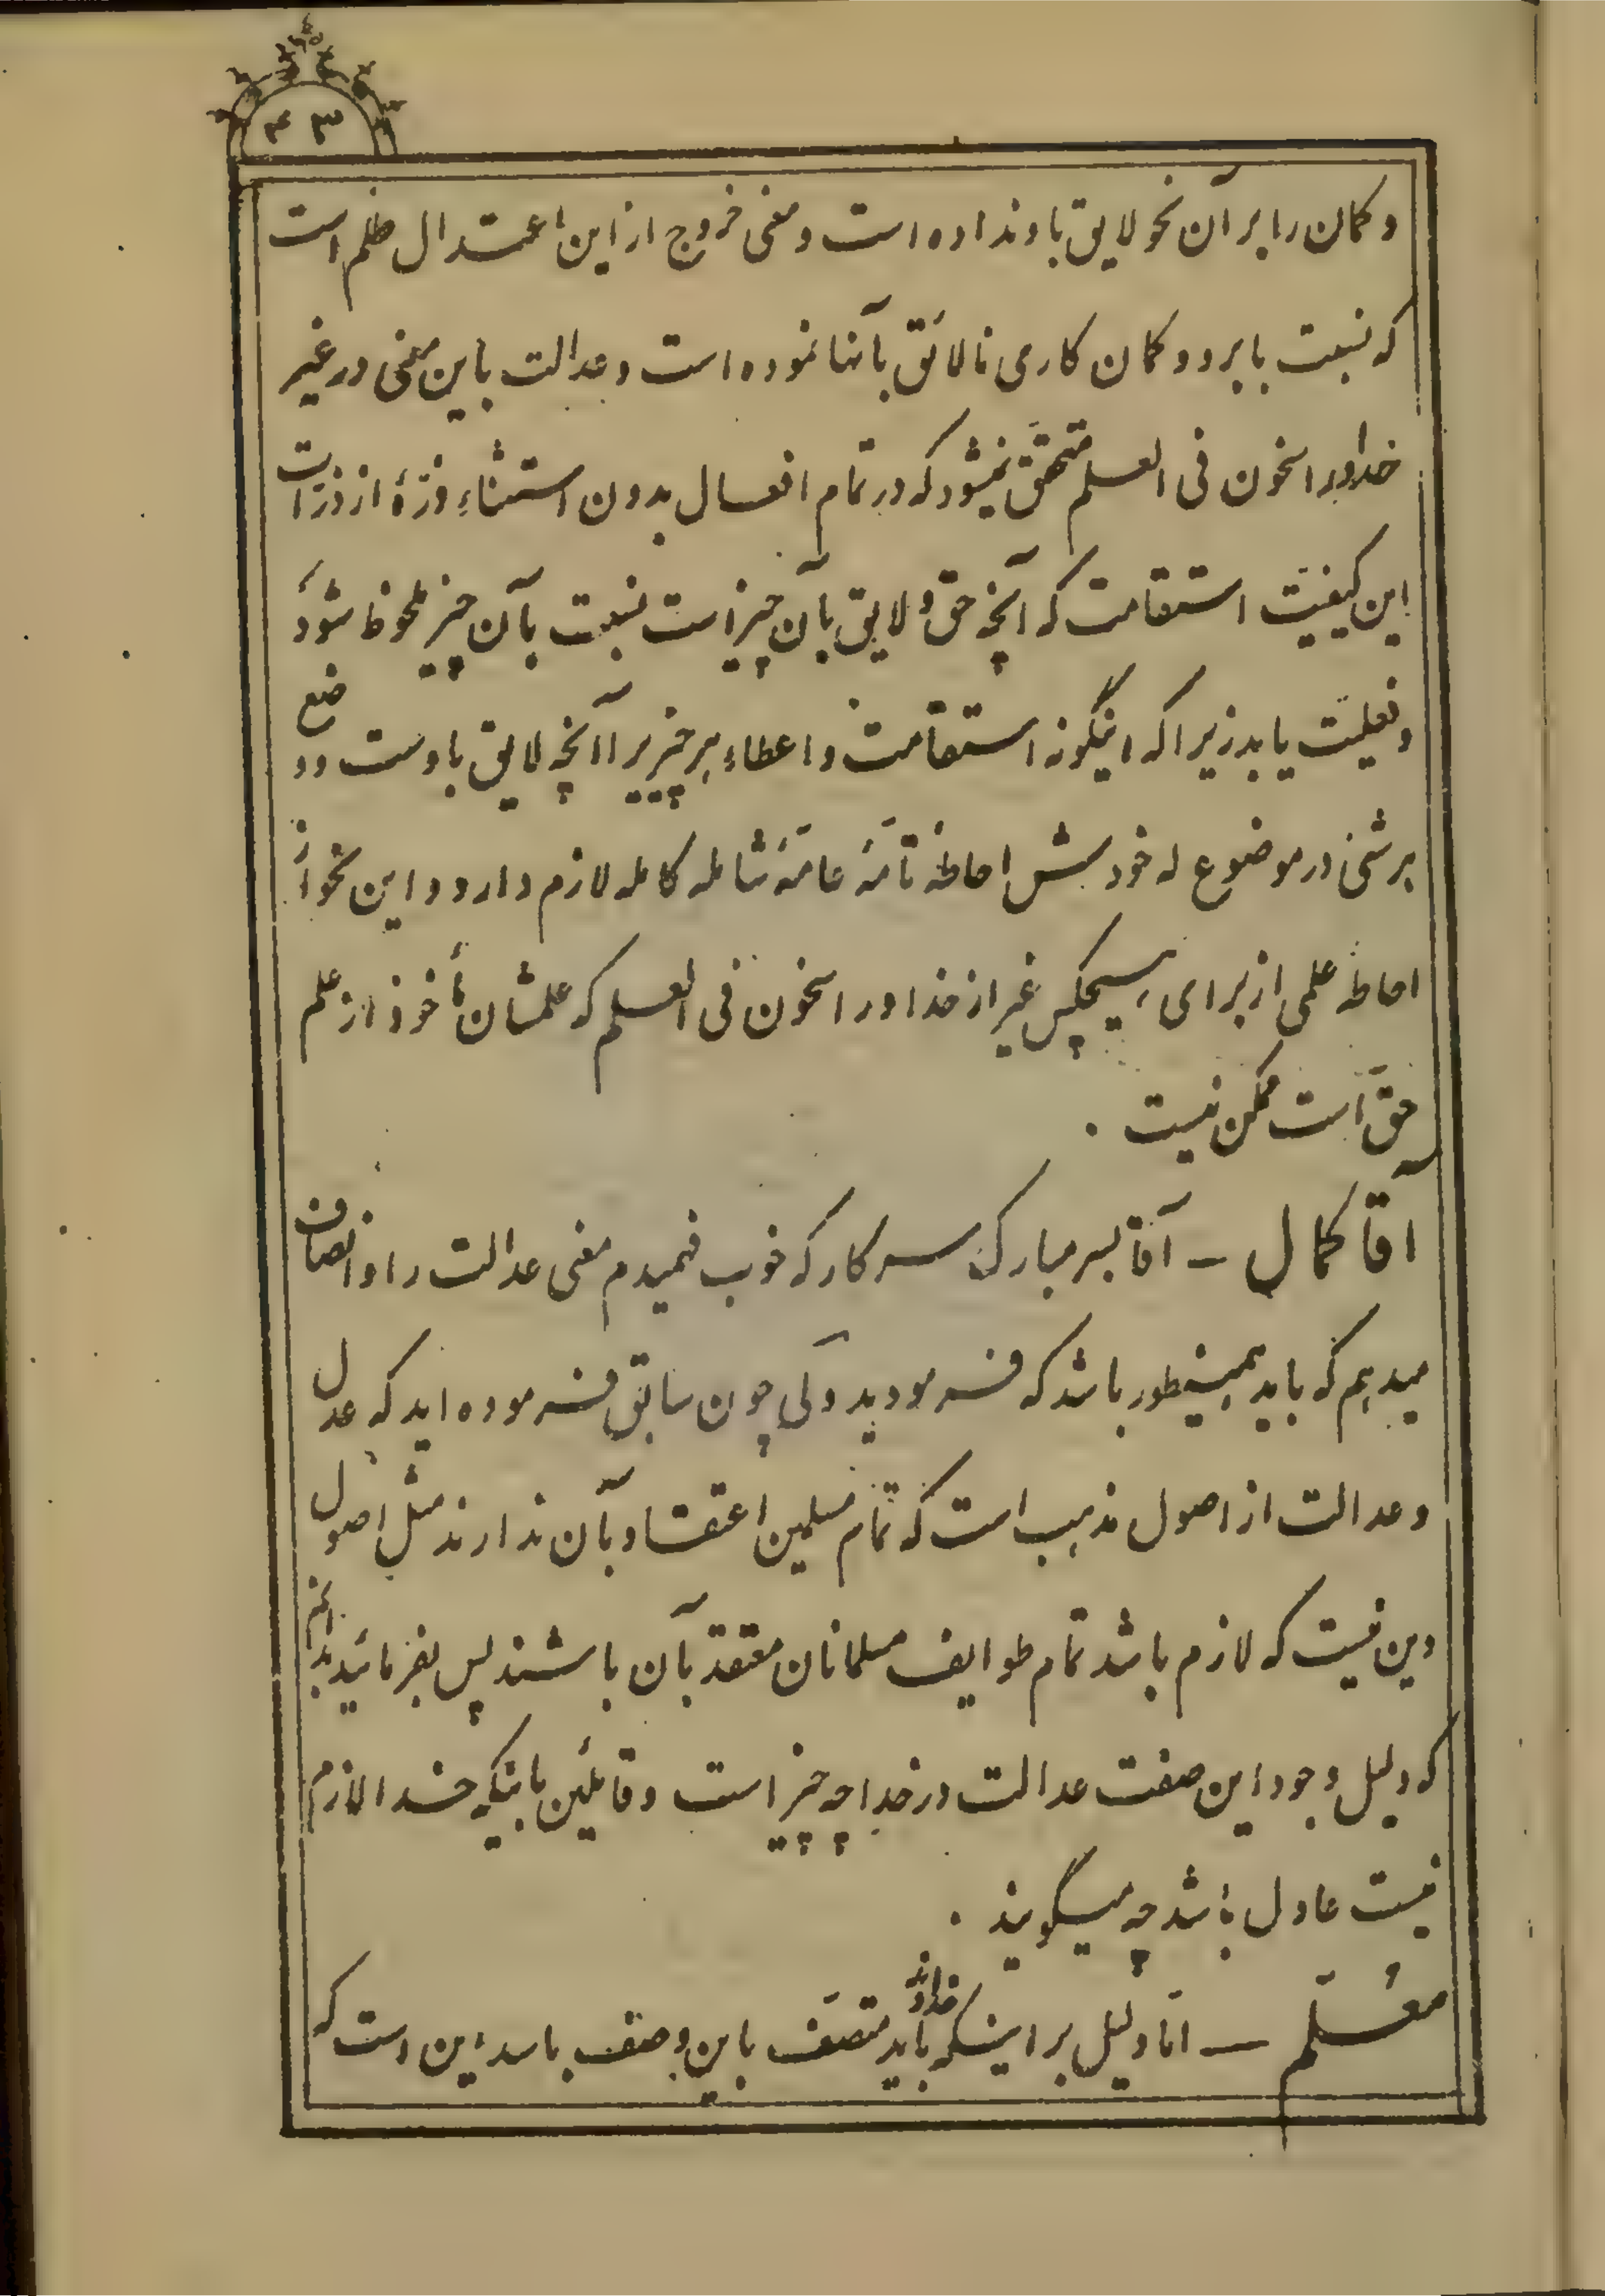 ۴۳
و کمان را بر آن نحو لایق باو نداده است و معنی خروج از این اعتدال ظلم است
که نسبت بابرو و کمان کاری نالائق بآنها نموده است و عدالت باین معنی در غیر
خدا و راسخون فی العلم متحقّق نمیشود که در تمام افعال بدون استثناء ذرّهٔ از ذرّات
این کیفیّت استقامت که آنچه حق و لایق بآن چیز است نسبت بآن چیز ملحوظ شود
و فعلیّت یابد زیرا که اینگونه استقامت و اعطاء هر چیزیرا آنچه لایق باوست و وضع
هر شئی در موضوع له خودش احاطهٔ تامّهٔ عامّهٔ شاملهٔ کامله لازم دارد و این نحو از
احاطه علمی از برای هیچکس غیر از خدا و راسخون فی العلم که علمشان مأخوذ از علم
حقّ است ممکن نیست .
آقا کمال – آقا بسر مبارک سرکار که خوب فهمیدم معنی عدالت را و انصاف
میدهم که باید همینطور باشد که فرمودید ولی چون سابق فرموده اید که عدل
و عدالت از اصول مذهب است که تمام مسلمین اعتقاد بآن ندارند مثل اصول
دین نیست که لازم باشد تمام طوایف مسلمانان معتقد بآن باشند پس بفرمائید بدانم
که دلیل وجود این صفت عدالت در خدا چه چیز است و قایلین باینکه خدا لازم
نیست عادل باشد چه میگویند .
معلّم – امّا دلیل بر اینکه خداوند باید متصّف باین وصف باسد این است که